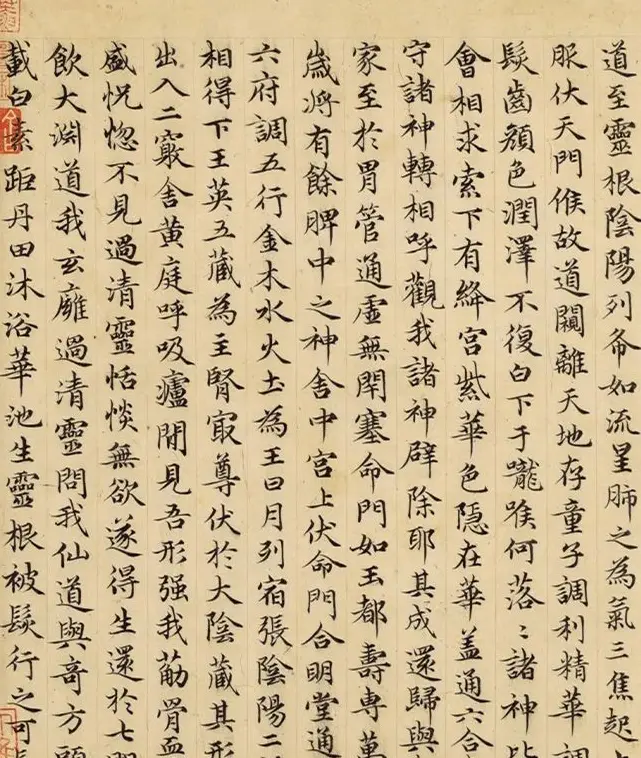 道至靈根陰陽列布如流星肺之為氣三焦起
服伏天門候故道闚離天地存童子調利精華調
髮齒顏色潤澤不復白下于嚨喉何落〻諸神皆
會相求索下有絳宮紫華色隱在華盖通六合
守諸神轉相呼觀我諸神辟除耶其成還歸與
家至於胃管通虛無閉塞命門如玉都壽専萬
歲將有餘脾中之神舍中宮上伏命門合明堂通
六府調五行金木水火土為王日月列宿張陰陽二
相得下王英五藏為主腎㝡尊伏於大陰藏其形
出入二竅舍黃庭呼吸廬間見吾形强我筋骨血
盛恍惚不見過清靈恬惔無欲遂得生還於七門
飲大渊道我玄廱過清靈問我仙道與竒方頭
載白素距丹田沐浴華池生靈根被髮行之可